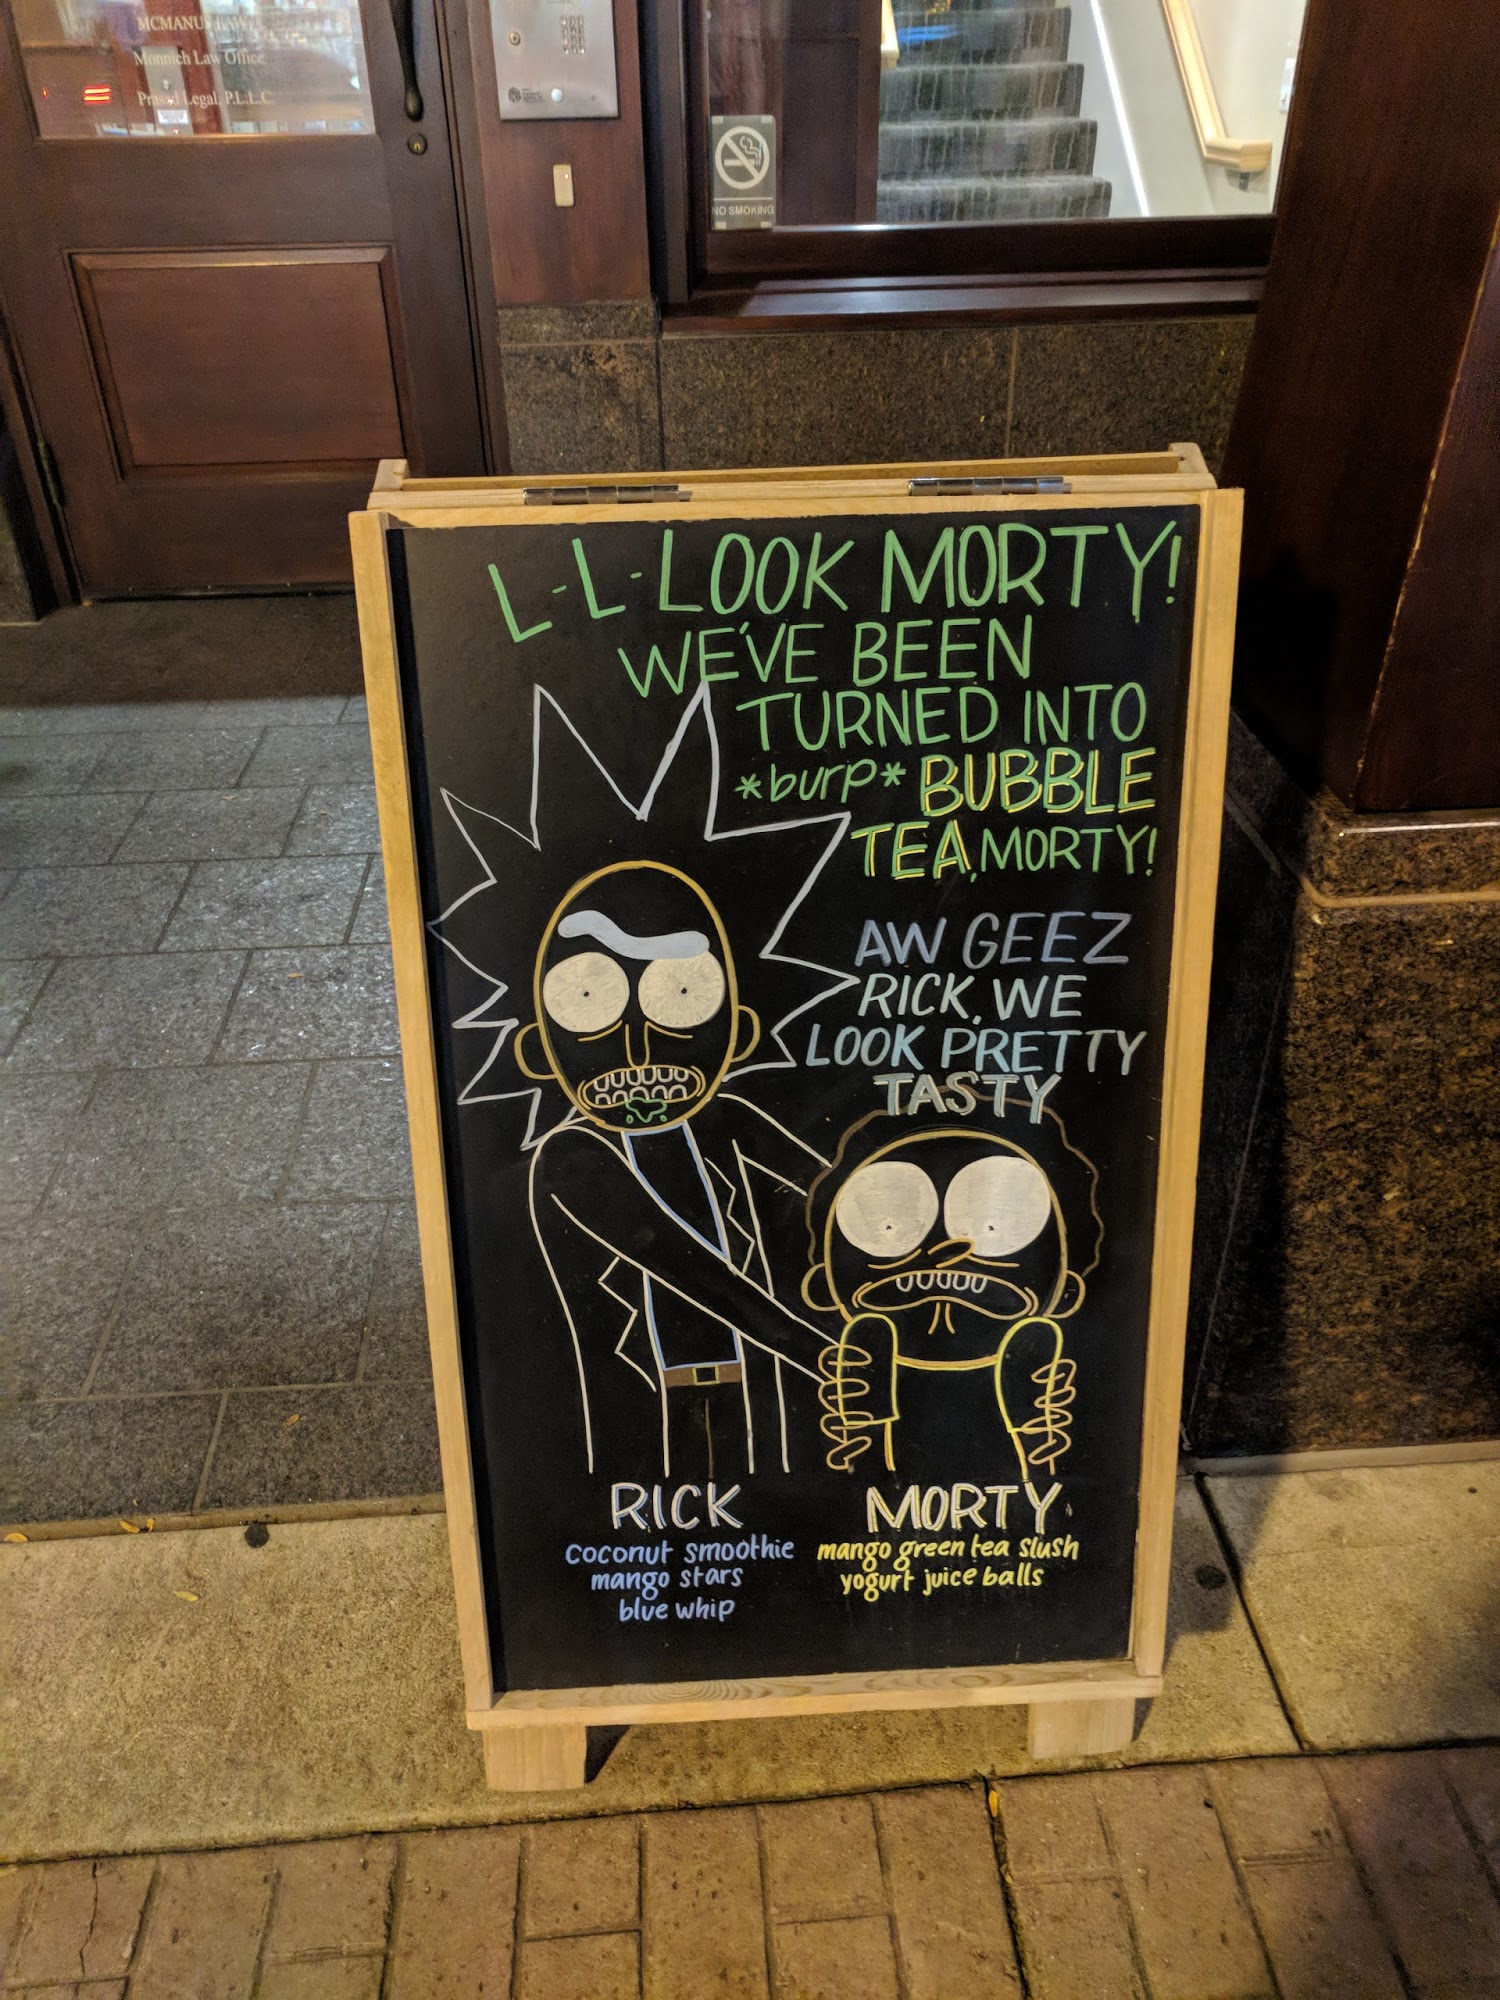 MCMANUS LAW
Monnich Law Office
Legal, P.L.L.C.
NO SMOKING
L-L-LOOK MORTY!
WE'VE BEEN
TURNED INTO
*burp* BUBBLE
TEA, MORTY!
AW GEEZ
RICK, WE
LOOK PRETTY
TASTY
RICK
coconut smoothie
mango stars
blue whip
MORTY
mango green tea slush
yogurt juice balls